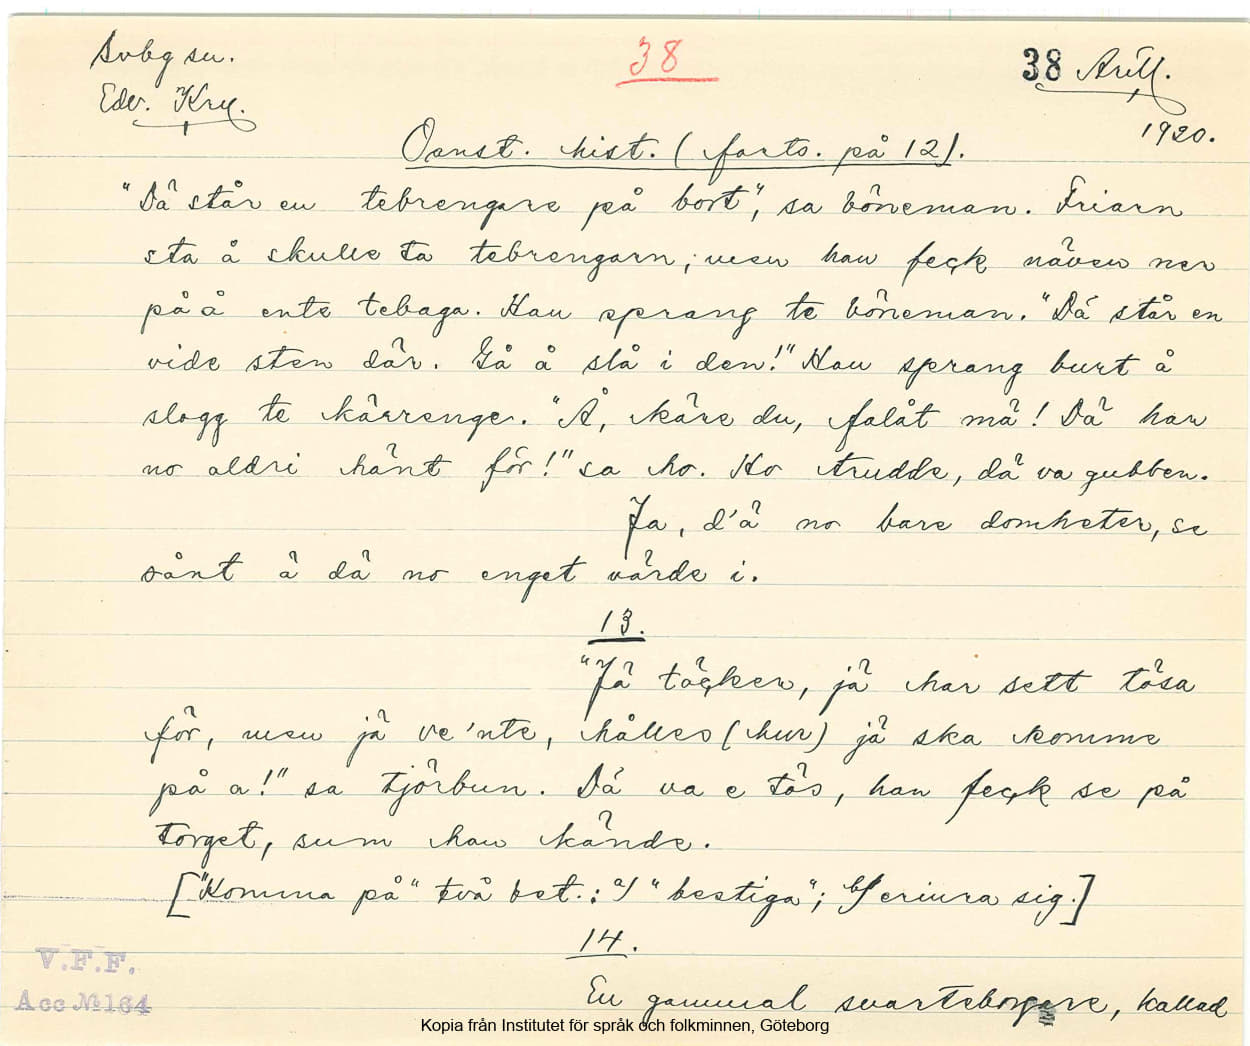 Svbg sn.
38
38 Arill.
Edv. Kru.
1920.
Oanst. hist. (forts. på 12).
"Dä står en tebrengare på bort", sa böneman. Friarn
sta å skulle ta tebrengarn; men han feck näven ner
på å ente tebaga. Han sprang te böneman. "Dä står en
vide sten där. Gå å slå i den!" Han sprang burt å
slogg te kärrenge. "Å, käre du, falåt mä! Dä har
no aldri hänt för!" sa ho. Ho trudde, dä va gubben.
Ja, d'ä no bare domheter, se
sånt ä dä no enget värde i.
13.
"Jä töcker, jä har sett tösa
för, men jä ve'nte, hålles (hur) jä ska komme
på a!" sa tjörbun. Dä va e tös, han feck se på
torget, sum han kände.
["Komma på" två bet.: a/ "bestiga"; b/ erinra sig.]
14.
V.F.F.
Acc № 164
En gammal svarteborgare, kallad
Kopia från Institutet för språk och folkminnen, Göteborg